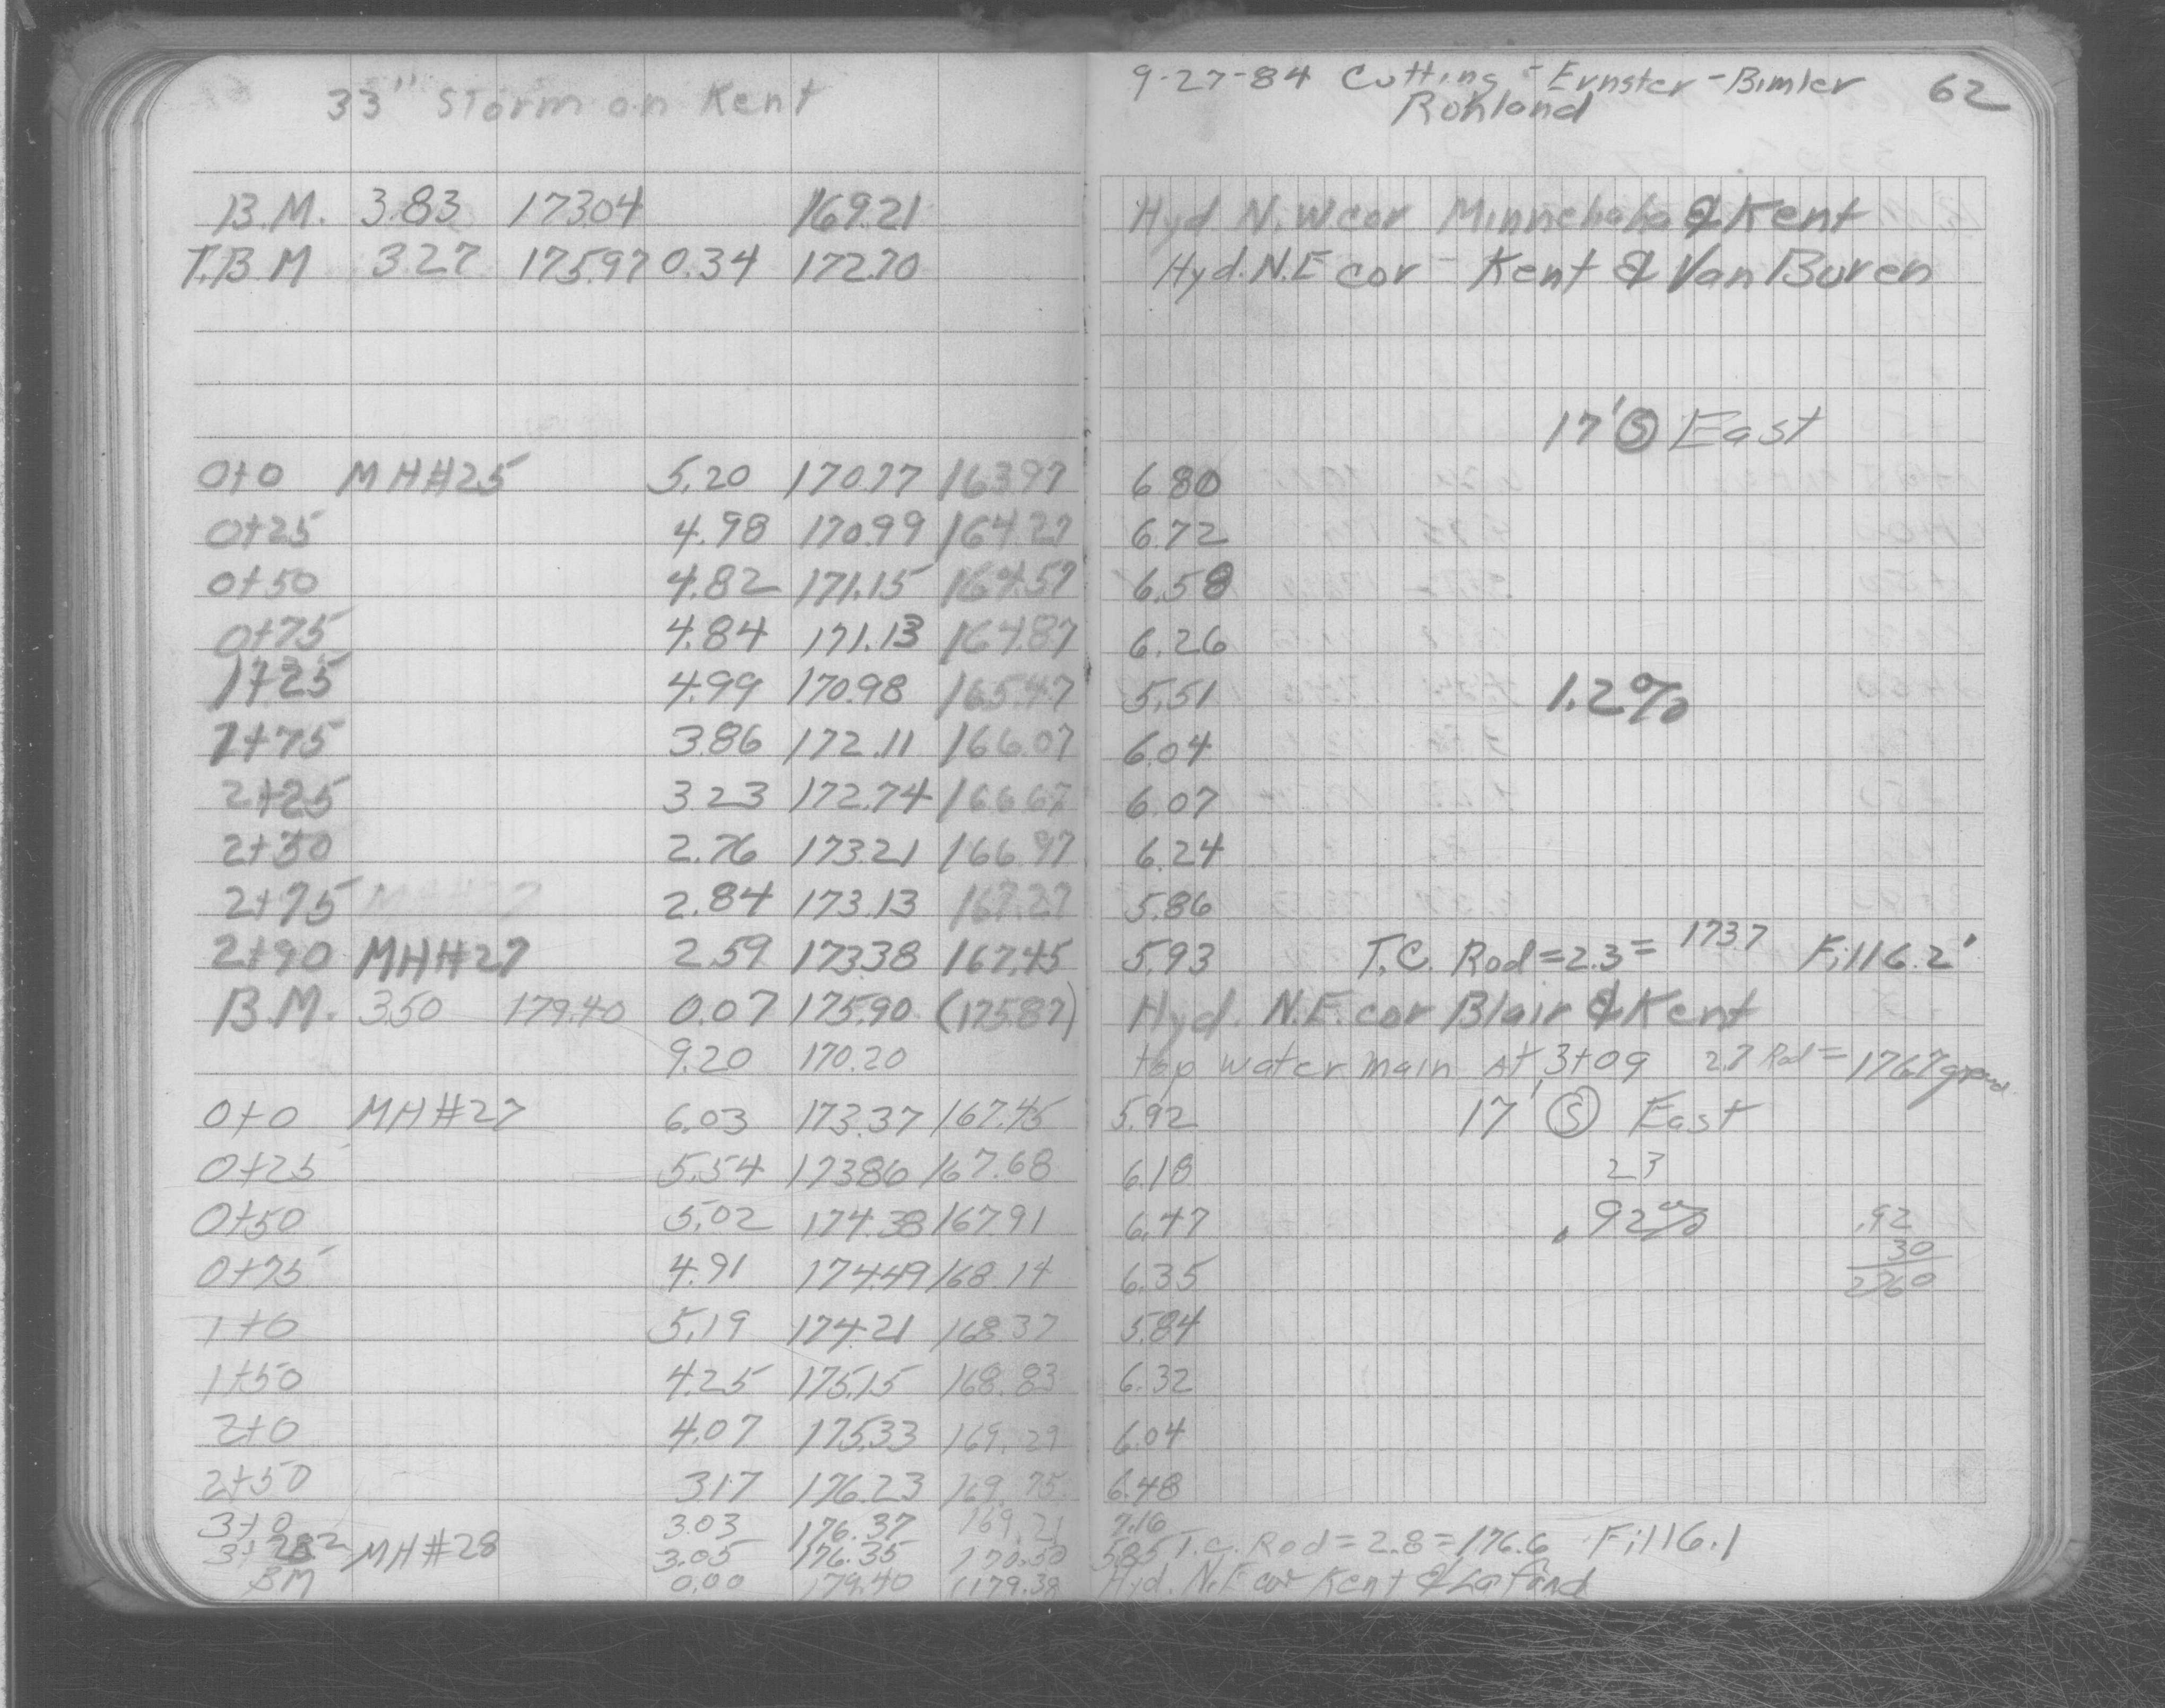 33" Storm on Kent
9-27-84 Cutting - Ernster - Bimler 62
Rohland
B.M. 3.83 173.04 169.21 Hyd N.W cor Minnehaha & Kent
T.B.M 3.27 175.97 0.34 172.70 Hyd. N.E cor - Kent & Van Buren
17' Ⓢ East
0+0 MH#25 5.20 170.77 163.97 6.80
0+25 4.98 170.99 164.27 6.72
0+50 4.82 171.15 164.57 6.58
0+75 4.84 171.13 164.87 6.26
1+25 4.99 170.98 165.47 5.51 1.2%
1+75 3.86 172.11 166.07 6.04
2+25 3.23 172.74 166.67 6.07
2+50 2.76 173.21 166.97 6.24
2+75 2.84 173.13 167.27 5.86
2+90 MH#27 2.59 173.38 167.45 5.93 T.C. Rod=2.3= 173.7 Fill 6.2'
B.M. 3.50 179.40 0.07 175.90 (175.87) Hyd. N.E. cor Blair & Kent
9.20 170.20 top water main At 3+09 2.7 Rod = 176.7 ground
0+0 MH#27 6.03 173.37 167.45 5.92 17' Ⓢ East
0+25 5.54 173.86 167.68 6.18 23
0+50 5.02 174.38 167.91 6.47 .92% .92
30
0+75 4.91 174.49 168.14 6.35 2760
1+0 5.19 174.21 168.37 5.84
1+50 4.25 175.15 168.83 6.32
2+0 4.07 175.33 169.29 6.04
2+50 3.17 176.23 169.75 6.48
3+0 3.03 176.37 169.21 7.16
MH#28 3.05 176.35 170.50 5.85 T.C. Rod = 2.8 = 176.6 Fill 6.1
BM 0.00 179.40 (179.38 Hyd. N.E cor Kent & Lafond